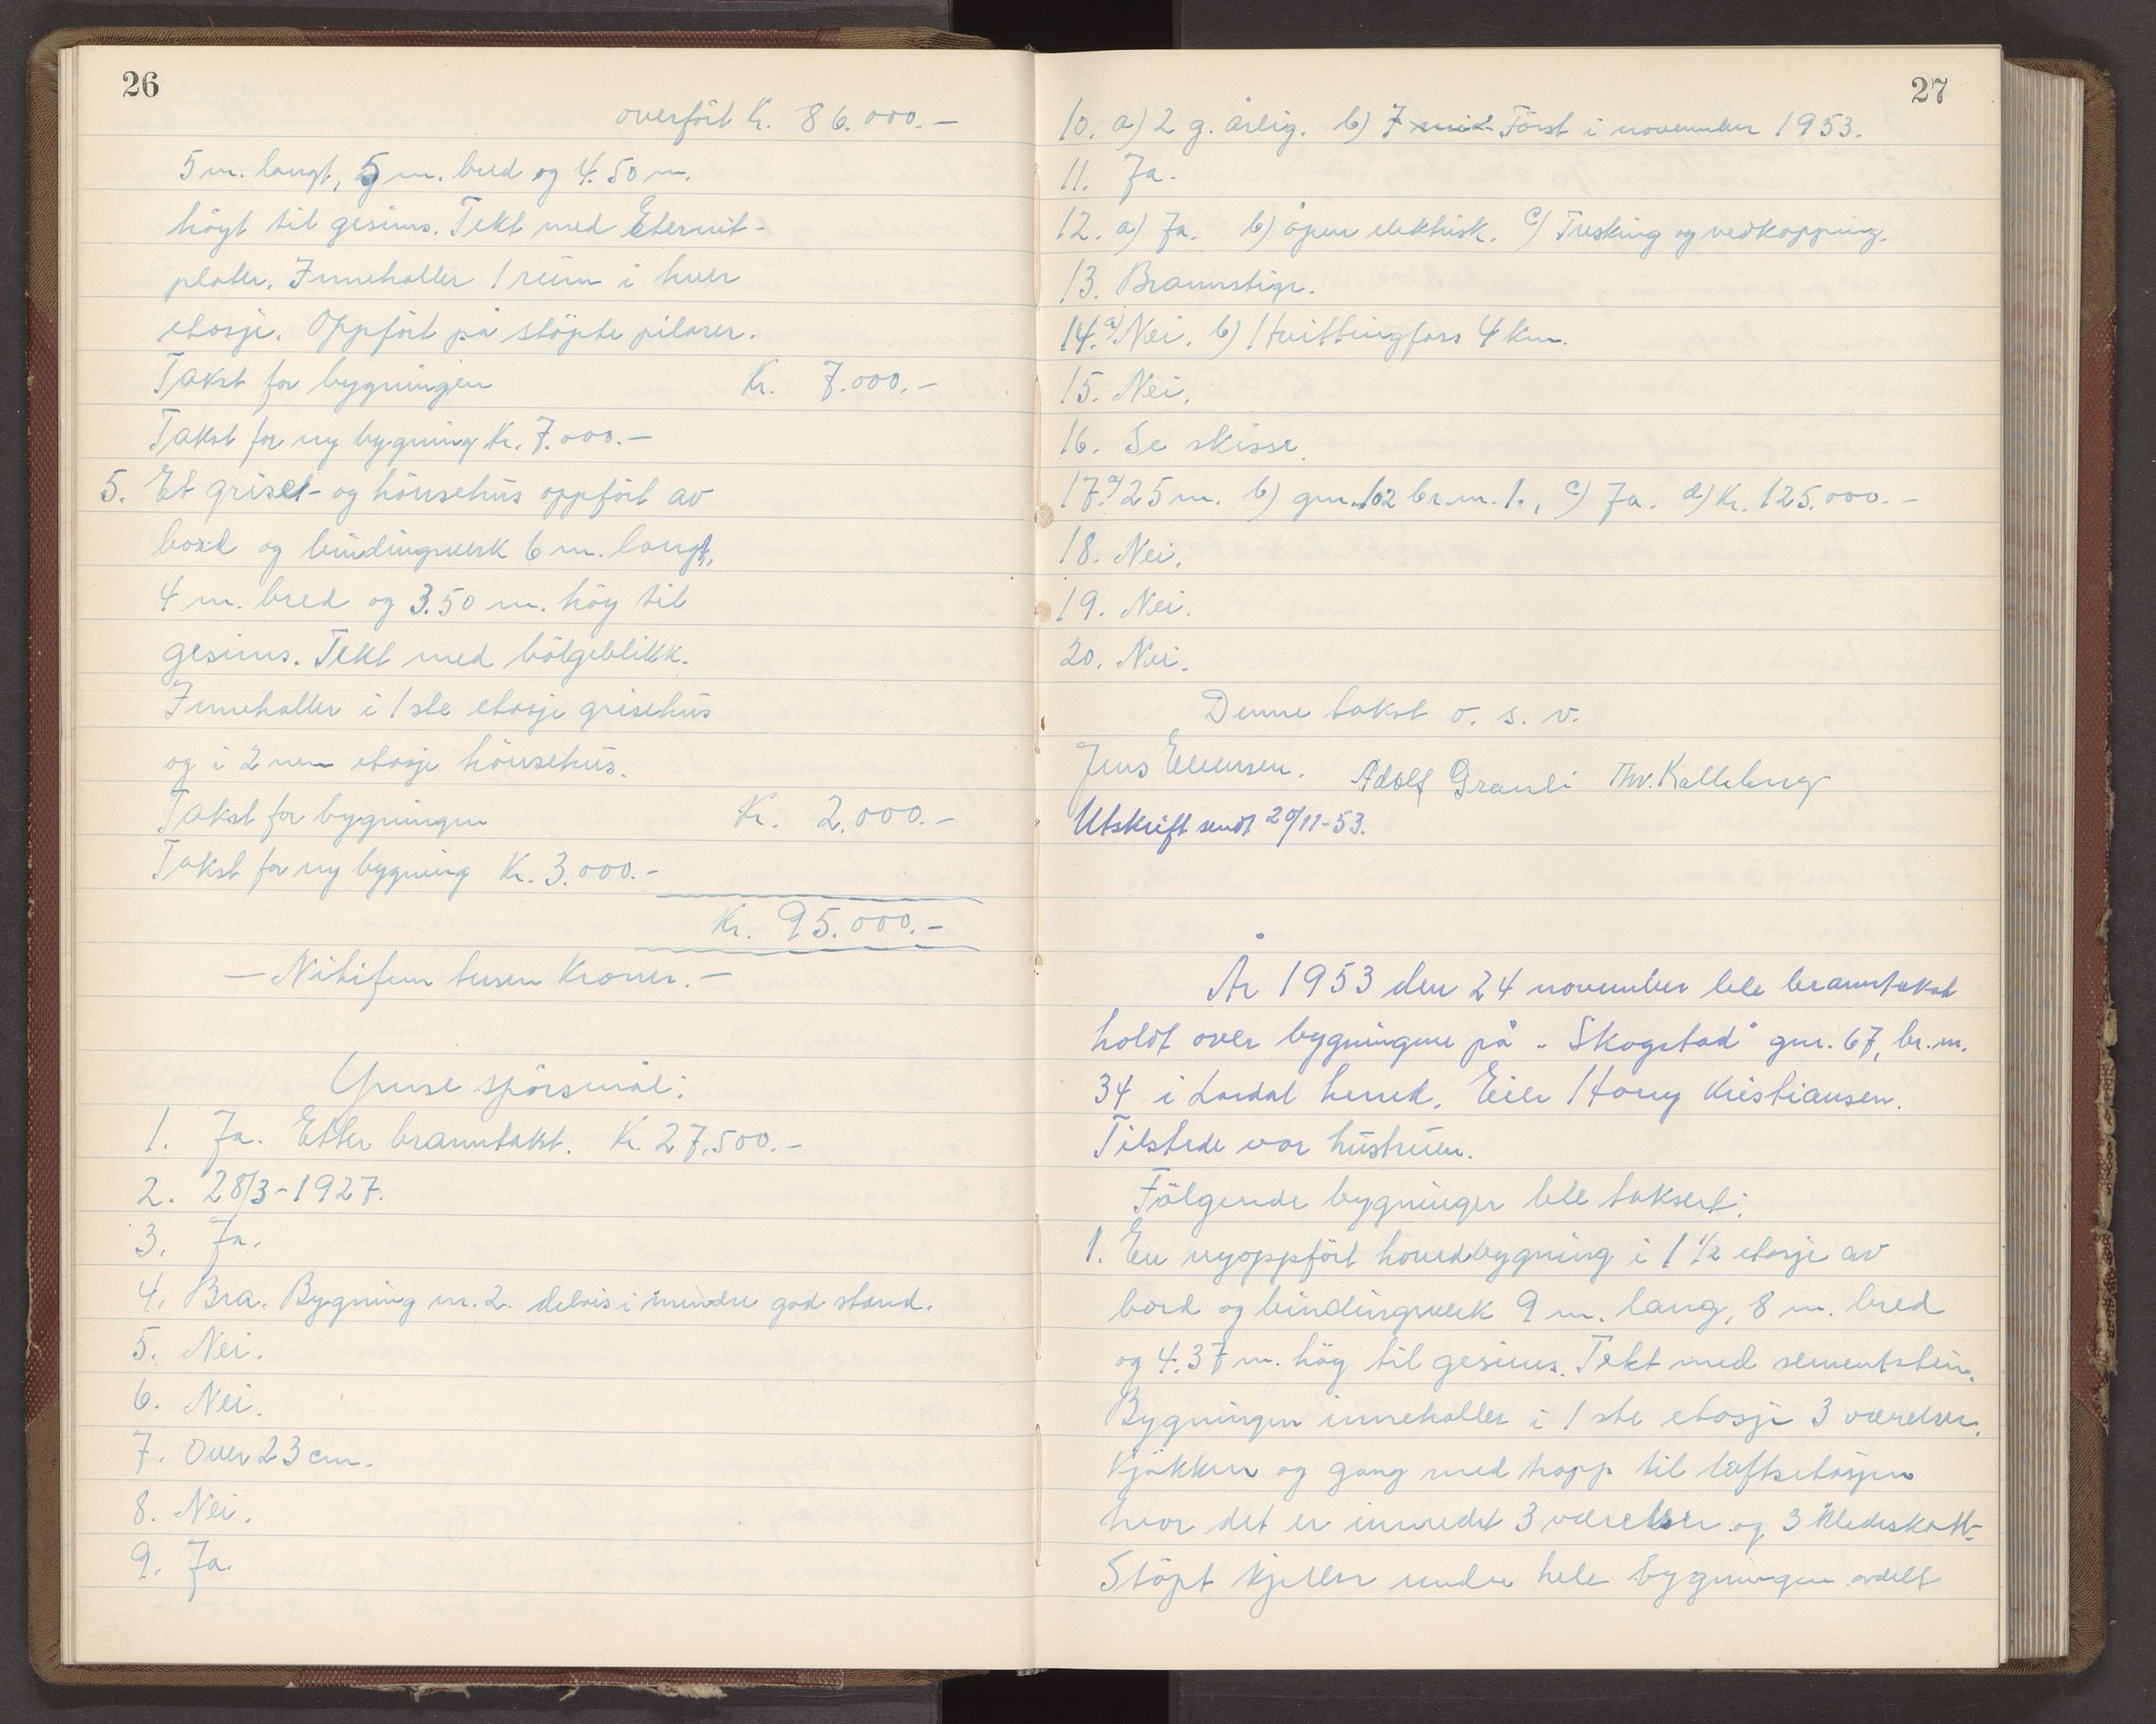 26
overfört Kr. 86.000.-
5 m. langt, 5 m. bred og 4.50 m.
högt til gesims. Tekt med Eternit-
plater. Inneholler 1 rum i hver
etasje. Oppfört på stöpte pilarer.
Takst for bygningen Kr. 7.000.-
Takst for ny bygning Kr. 7.000.-
5. Et grise- og hönsehus oppfört av
bord og bindingsverk 6 m. langt,
4 m. bred og 3.50 m. höy til
gesims. Tekt med bölgeblikk.
Inneholler i 1ste etasje grisehus
og i 2nen etasje hönsehus.
Takst for bygningen Kr. 2.000.-
Takst for ny bygning Kr. 3.000.-
Kr. 95.000.-
- Nitifem tusen Kroner. -
Ymse spörsmål:
1. Ja. Etter branntakst. Kr. 27.500.-
2. 28/3-1927.
3. Ja.
4. Bra. Bygning nr. 2. delvis i mindre god stand.
5. Nei.
6. Nei.
7. Over 23 cm.
8. Nei.
9. Ja.
27
10. a) 2 g. årlig. b) Först i november 1953.
11. Ja.
12. a) Ja. b) åpen elektrisk. c) Tresking og vedkapping.
13. Brannstige.
14. a) Nei. b) Hvittingfoss 4 km.
15. Nei.
16. Se skisse.
17. a) 25 m. b) gnr. 102 br.nr. 1., c) Ja. d) Kr. 125.000.-
18. Nei.
19. Nei.
20. Nei.
Denne takst o. s. v.
Jens Evensen. Adolf Granli Thv. Kalleberg
Utskrift sendt 20/11-53.
År 1953 den 24 november ble branntakst
holdt over bygningene på "Skogstad" gnr. 67, br.nr.
34 i Lardal herred. Eier Harry Kristiansen.
Tilstede var hustruen.
Fölgende bygninger ble taksert:
1. En nyoppfört hovedbygning i 1 1/2 etasje av
bord og bindingsverk 9 m. lang, 8 m. bred
og 4.37 m. höy til gesims. Tekt med sementstein.
Bygningen inneholler i 1ste etasje 3 værelser,
kjökken og gang med trapp til loftsetasjen
hvor det er innredet 3 værelser og 3 kledeskott.
Stöpt kjeller under hele bygningen avdelt